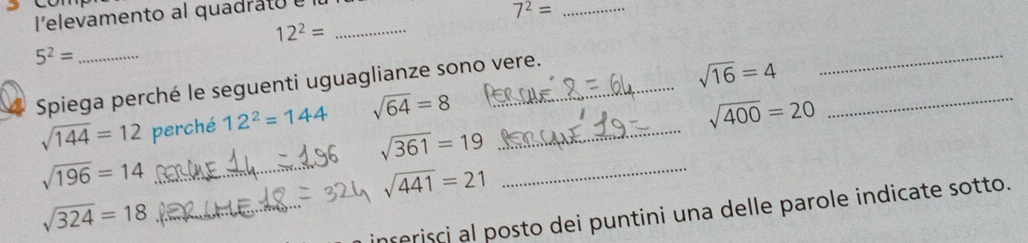 l'elevamento al quadrato e
5² = ............ 12² = ............ 7² = ............
4 Spiega perché le seguenti uguaglianze sono vere.
√144 = 12 perché 12² = 144 √64 = 8 PERCHE' 8 = 64 √16 = 4 ............
√196 = 14 PERCHE 14 = 196 √361 = 19 PERCHE' 19 = √400 = 20 ............
√324 = 18 PERCHE 18 = 324 √441 = 21 ............
inserisci al posto dei puntini una delle parole indicate sotto.